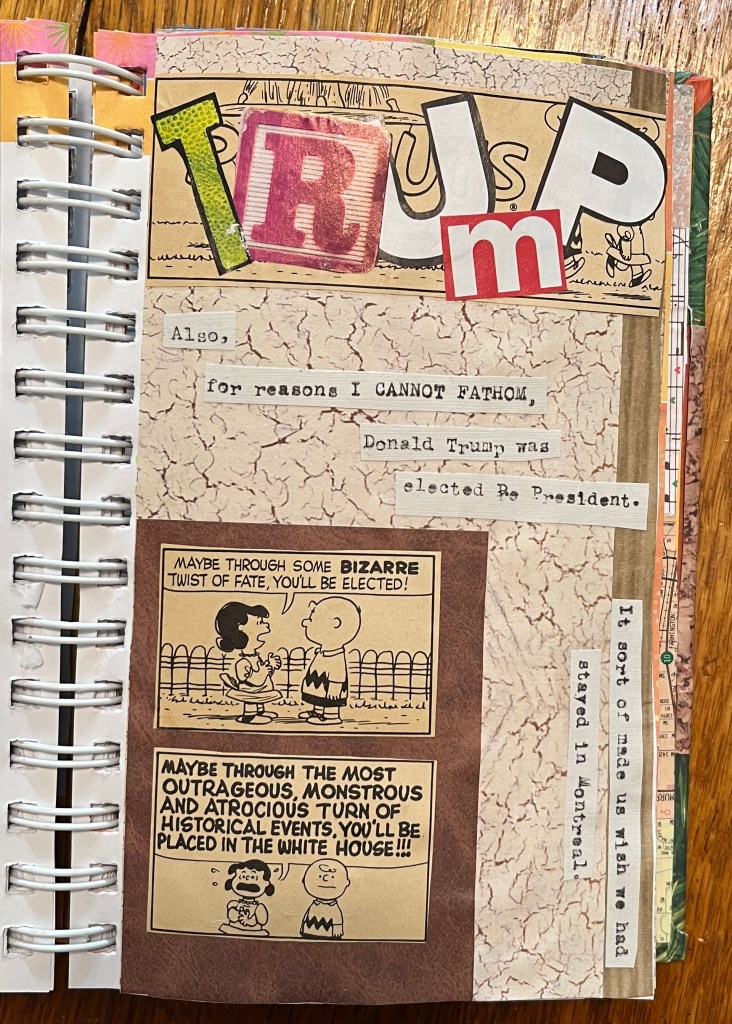 TRUmP
Also,
for reasons I CANNOT FATHOM,
Donald Trump was
elected Re President.
MAYBE THROUGH SOME BIZARRE
TWIST OF FATE, YOU'LL BE ELECTED!
MAYBE THROUGH THE MOST
OUTRAGEOUS, MONSTROUS
AND ATROCIOUS TURN OF
HISTORICAL EVENTS, YOU'LL BE
PLACED IN THE WHITE HOUSE!!!
It sort of made us wish we had
stayed in Montreal.